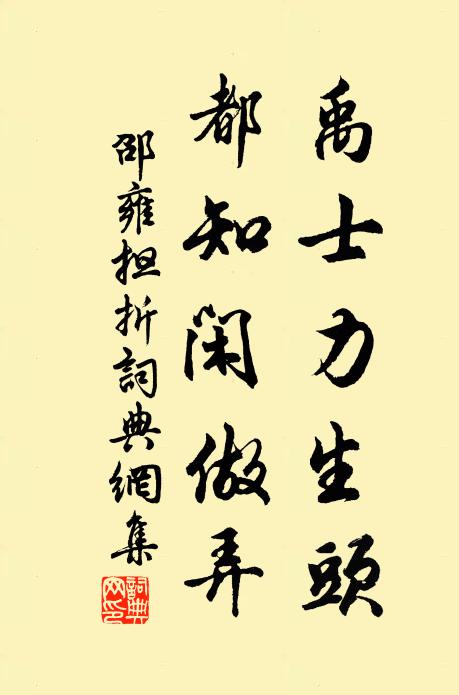 禹士力生頭
都知閑做弄
邵雍担折詞典網集
詞典网印